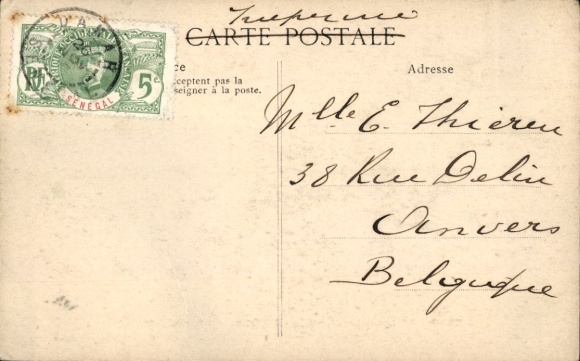 Imprimé
CARTE POSTALE
DAKAR
SÉNÉGAL
5c
RF
ce
cceptent pas la
seigner à la poste.
Adresse
Mlle E. Thieren
38 Rue Delin
Anvers
Belgique